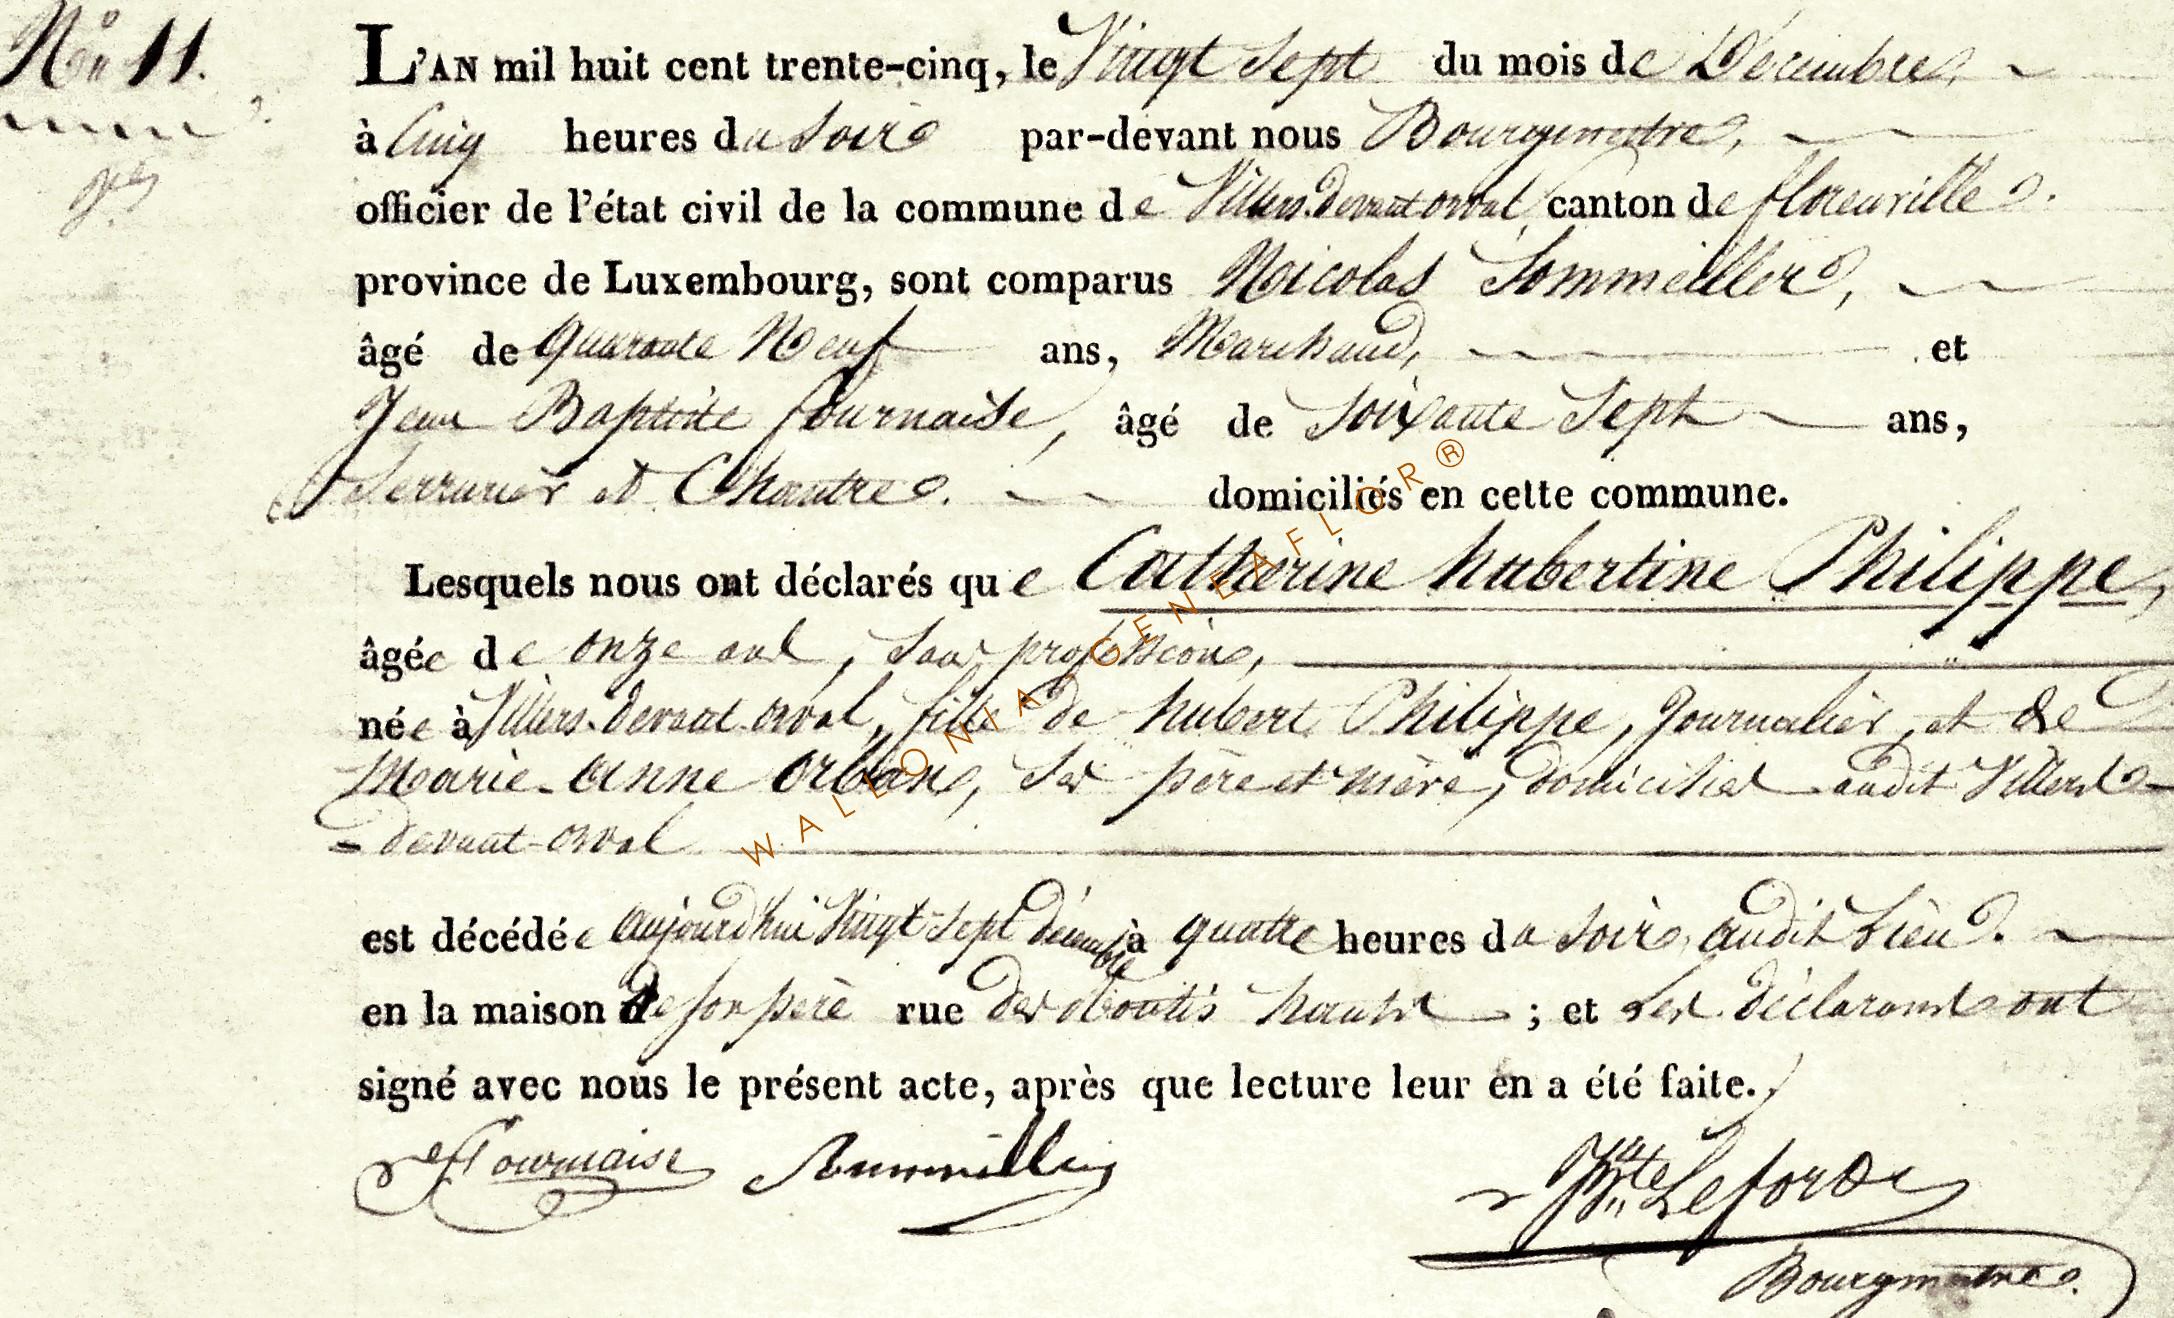 No 11.
L'AN mil huit cent trente-cinq, le Vingt Sept du mois de Décembre,
à Cinq heures du Soir par-devant nous Bourgmestre,
officier de l'état civil de la commune de Villers-devant-orval canton de florenville.
province de Luxembourg, sont comparus Nicolas Sommeiller,
âgé de Quarante Neuf ans, Marchand, et
Jean Baptiste fournaise, âgé de Soixante Sept ans,
Serrurier et Chantre. domiciliés en cette commune.
Lesquels nous ont déclarés que Catherine hubertine Philippe,
âgée de onze ans, Sans profession,
née à Villers-devant-orval, fille de hubert Philippe, Journalier, et de
Marie-anne orban, Ses père et mère, domiciliés audit Villers
-devant-orval
est décédée aujourd'hui Vingt-Sept décembre à quatre heures du soir, audit Lieu.
en la maison de son père rue des hauts ; et Les déclarans ont
signé avec nous le présent acte, après que lecture leur en a été faite.
Fournaise Sommeiller Lefort
Bourgmestre.
WALLONIA GENEAFLOR®